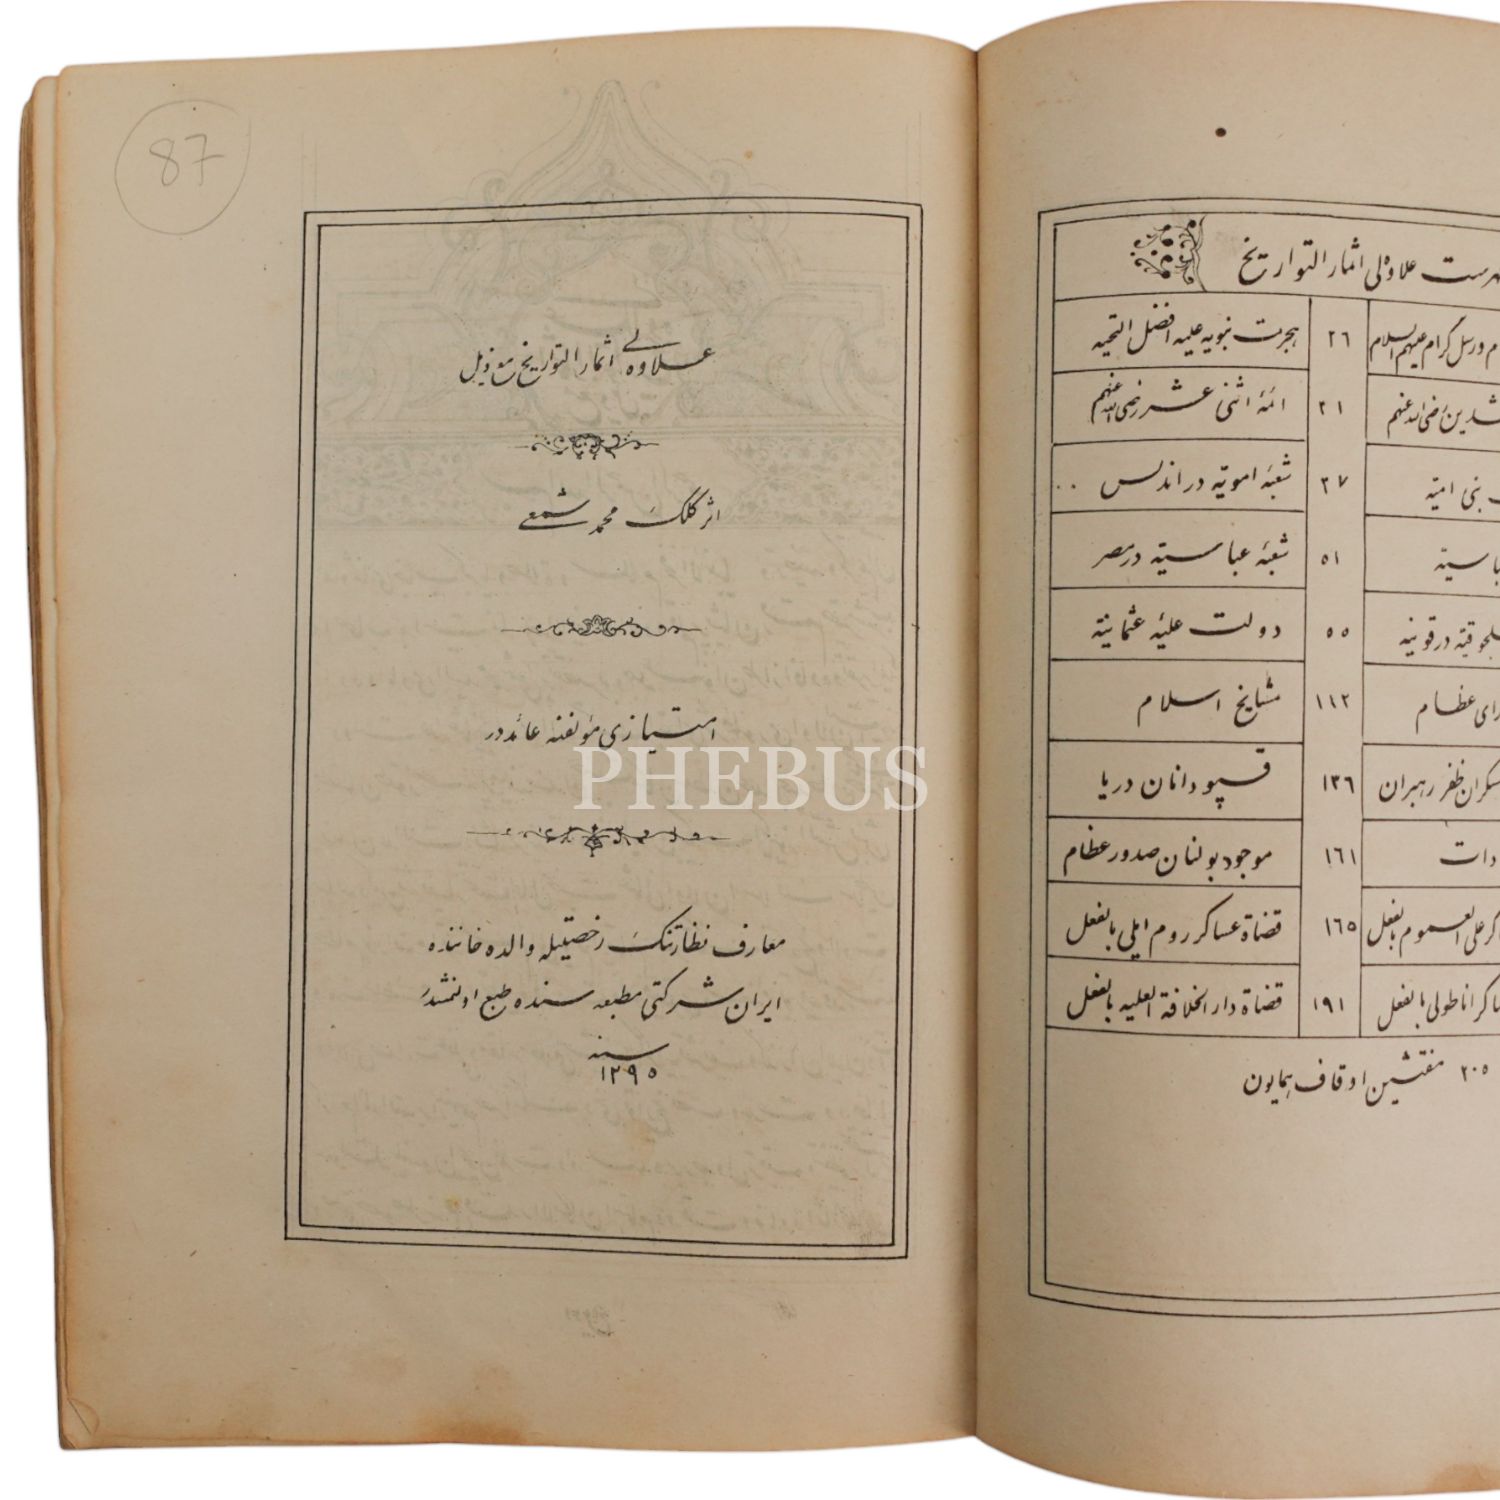 87
علاوه‌لی اثمار التواریخ مع ذیل
اثر کلک محمد شمعی
امتیازی مؤلفنه عائددر
معارف نظارتنک رخصتیله والده خاننده
ایران شرکتی مطبعه سنده طبع اولنمشدر
سنه
١٢٩٥
PHEBUS
علاوه‌لی اثمار التواریخ
ورسل کرام علیهم السلام
٢٦ هجرت نبویه علیه افضل التحیه
رضی الله عنهم
٣١ ائمهٔ اثنی عشر رضی الله عنهم
بنی امیه
٣٧ شعبهٔ امویه در اندلس
٥١ شعبهٔ عباسیه در مصر
در قونیه
٥٥ دولت علیهٔ عثمانیه
عظام
١١٢ مشایخ اسلام
ظفر رهبران
١٣٦ قپودانان دریا
١٦١ موجود بولنان صدور عظام
علی العموم بالفعل
١٦٥ قضاة عساکر روم ایلی بالفعل
اناطولی بالفعل
١٩١ قضاة دار الخلافة العلیه بالفعل
٢٠٥ مفتشین اوقاف همایون